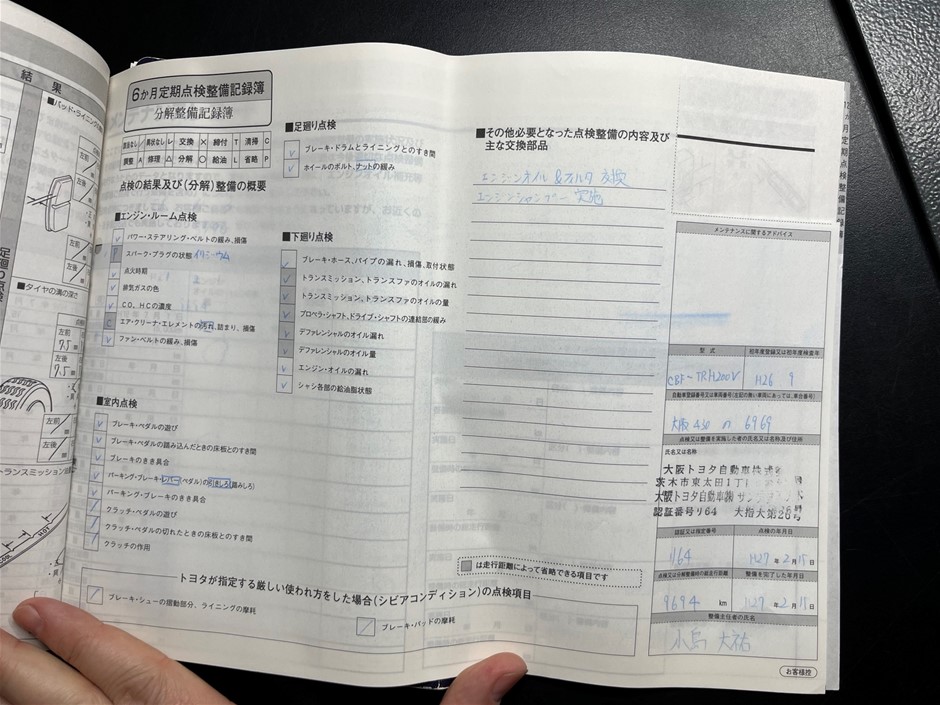 結果
■パッド・ライニングの
左前
左後
■タイヤの溝の深さ
左前
7.5
左後
9.5
左前
左後
足廻り点検
トランスミッション
6か月定期点検整備記録簿
分解整備記録簿
異状なし レ 交換 × 締付 T 清掃 C
調整 A 修理 △ 分解 ○ 給油 L 省略 P
点検の結果及び(分解)整備の概要
■エンジン・ルーム点検
パワー・ステアリング・ベルトの緩み、損傷
スパーク・プラグの状態 イリジウム
点火時期
排気ガスの色
CO、HCの濃度
エア・クリーナ・エレメントの汚れ、詰まり、損傷
ファン・ベルトの緩み、損傷
■室内点検
ブレーキ・ペダルの遊び
ブレーキ・ペダルの踏み込んだときの床板とのすき間
ブレーキのきき具合
パーキング・ブレーキ・レバー(ペダル)の引きしろ(踏みしろ)
パーキング・ブレーキのきき具合
クラッチ・ペダルの遊び
クラッチ・ペダルの切れたときの床板とのすき間
クラッチの作用
■足廻り点検
ブレーキ・ドラムとライニングとのすき間
ホイールのボルト、ナットの緩み
■下廻り点検
ブレーキ・ホース、パイプの漏れ、損傷、取付状態
トランスミッション、トランスファのオイルの漏れ
トランスミッション、トランスファのオイルの量
プロペラ・シャフト、ドライブ・シャフトの連結部の緩み
デファレンシャルのオイル漏れ
デファレンシャルのオイル量
エンジン・オイルの漏れ
シャシ各部の給油脂状態
■その他必要となった点検整備の内容及び
主な交換部品
エンジンオイル&フィルタ 交換
エンジンシャンプー 実施
は走行距離によって省略できる項目です
トヨタが指定する厳しい使われ方をした場合(シビアコンディション)の点検項目
ブレーキ・シューの摺動部分、ライニングの摩耗
ブレーキ・パッドの摩耗
メンテナンスに関するアドバイス
型式
初年度登録又は初年度検査年
CBF-TRH200V
H26 9
自動車登録番号又は車両番号(左記の無い車両にあっては、車台番号)
大阪 430 の 6969
点検又は整備を実施した者の氏名又は名称及び住所
氏名又は名称
大阪トヨタ自動車株式
茨木市東太田1丁
大阪トヨタ自動車㈱
認証番号り64 大指大第26号
認証又は指定番号
点検の年月日
り64
H27 年 2 月 15 日
点検又は分解整備時の総走行距離
整備を完了した年月日
9694 km
H27 年 2 月 15 日
整備主任者の氏名
小島 大祐
お客様控
12か月定期点検整備記録